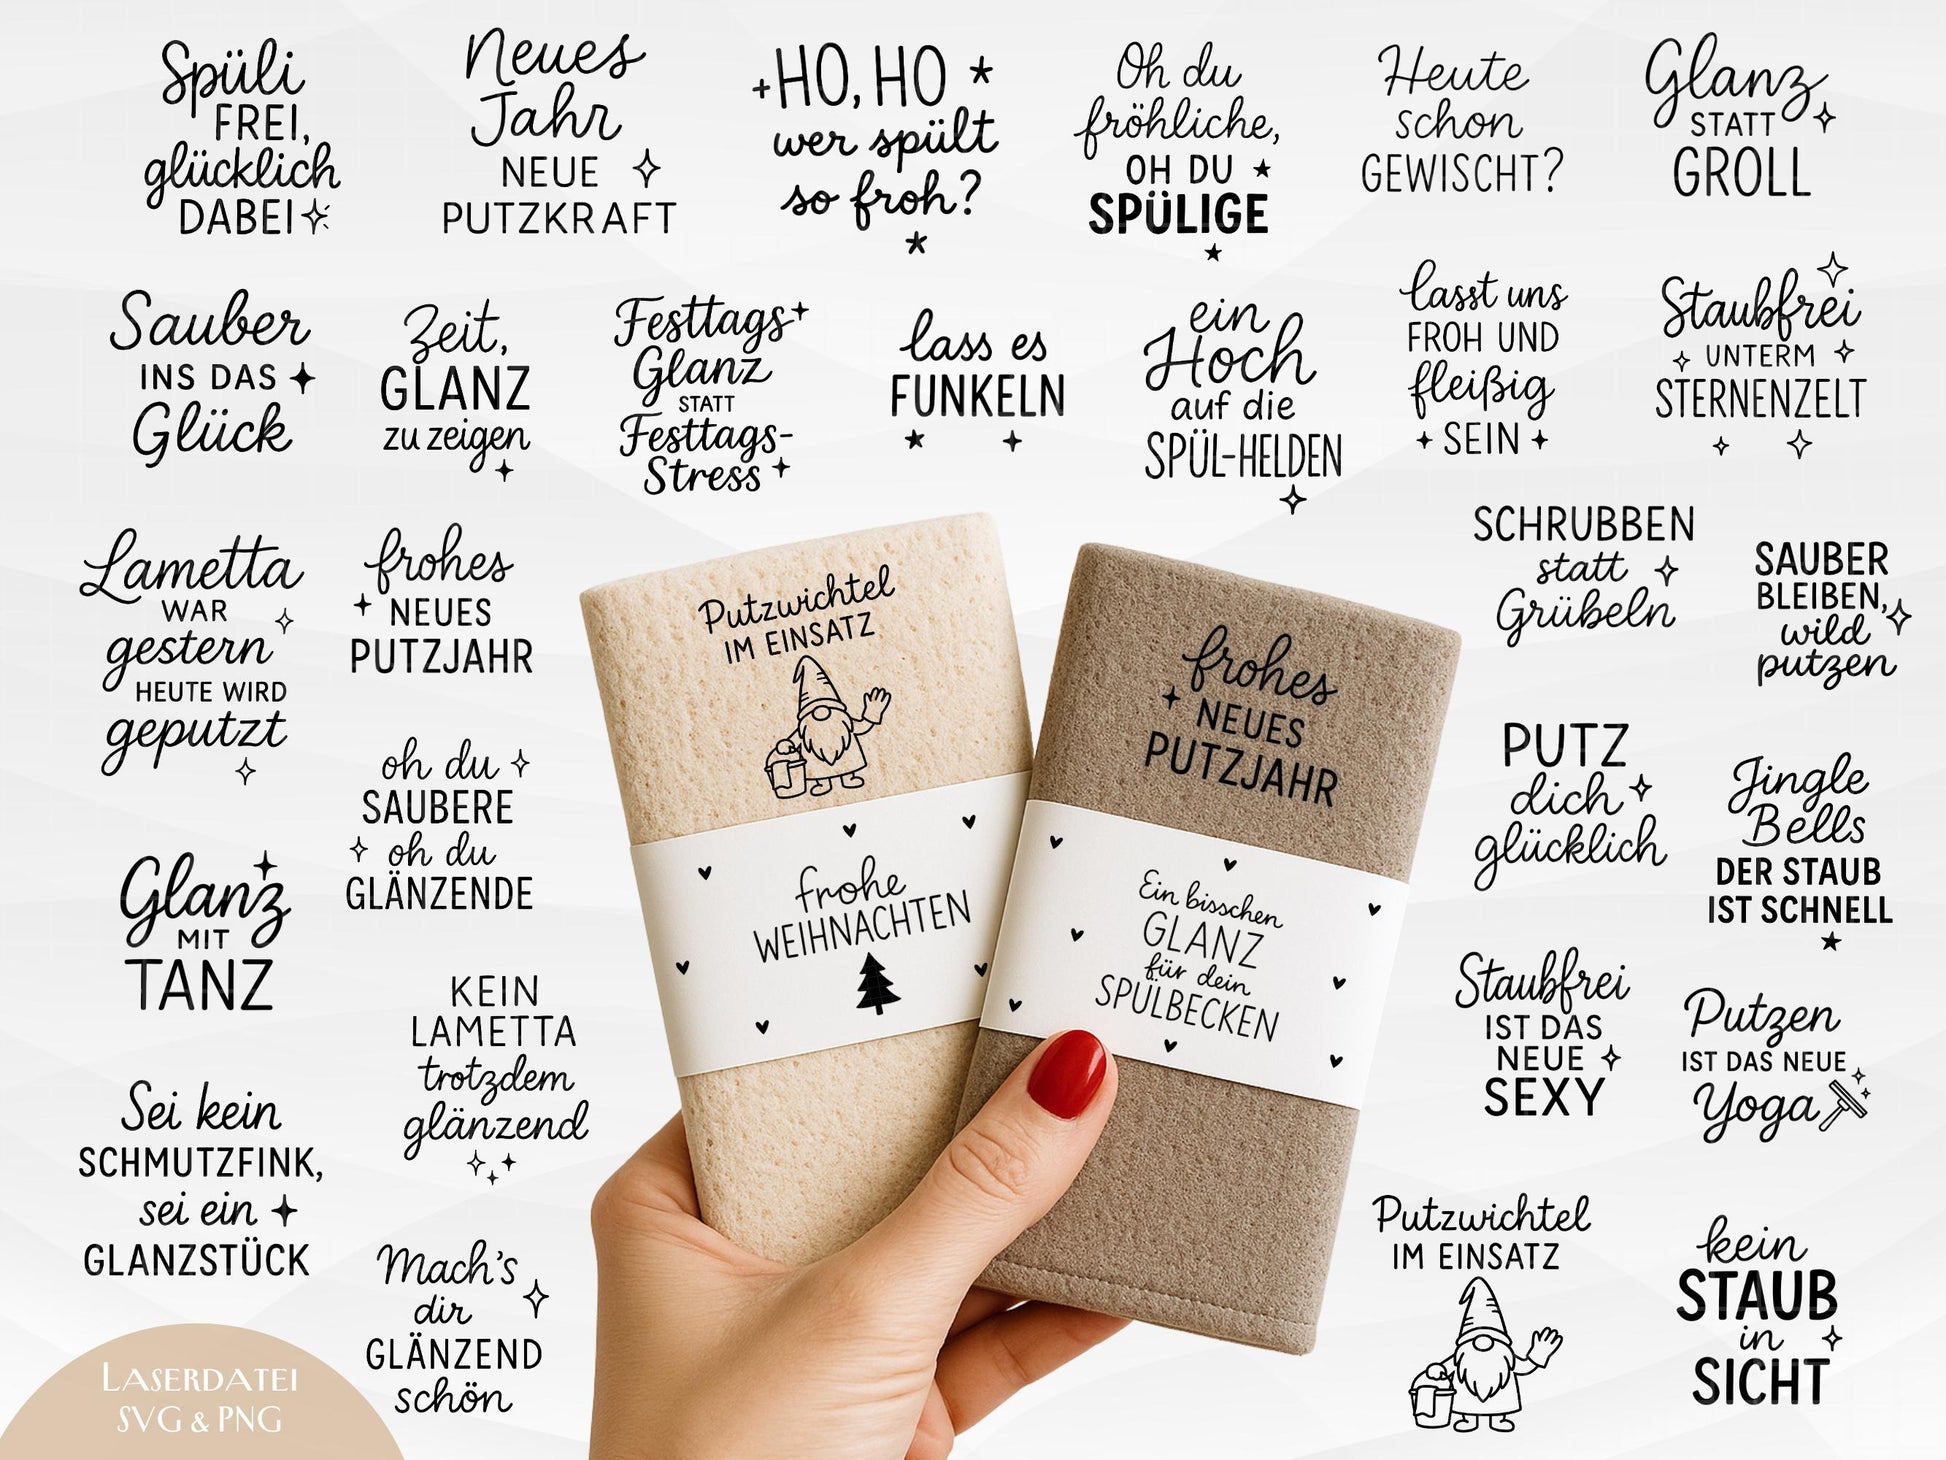 Spüli
FREI,
glücklich
DABEI
Neues
Jahr
NEUE
PUTZKRAFT
HO, HO
wer spült
so froh?
Oh du
fröhliche,
OH DU
SPÜLIGE
Heute
schon
GEWISCHT?
Glanz
STATT
GROLL
Sauber
INS DAS
Glück
Zeit,
GLANZ
zu zeigen
Festtags
Glanz
STATT
Festtags-
Stress
lass es
FUNKELN
ein
Hoch
auf die
SPÜL-HELDEN
lasst uns
FROH UND
fleißig
SEIN
Staubfrei
UNTERM
STERNENZELT
Lametta
WAR
gestern
HEUTE WIRD
geputzt
frohes
NEUES
PUTZJAHR
SCHRUBBEN
statt
Grübeln
SAUBER
BLEIBEN,
wild
putzen
Putzwichtel
IM EINSATZ
frohe
WEIHNACHTEN
frohes
NEUES
PUTZJAHR
Ein bisschen
GLANZ
für dein
SPÜLBECKEN
oh du
SAUBERE
oh du
GLÄNZENDE
PUTZ
dich
glücklich
Jingle
Bells
DER STAUB
IST SCHNELL
Glanz
MIT
TANZ
KEIN
LAMETTA
trotzdem
glänzend
Staubfrei
IST DAS
NEUE
SEXY
Putzen
IST DAS NEUE
Yoga
Sei kein
SCHMUTZFINK,
sei ein
GLANZSTÜCK
Mach's
dir
GLÄNZEND
schön
Putzwichtel
IM EINSATZ
kein
STAUB
in
SICHT
LASERDATEI
SVG & PNG